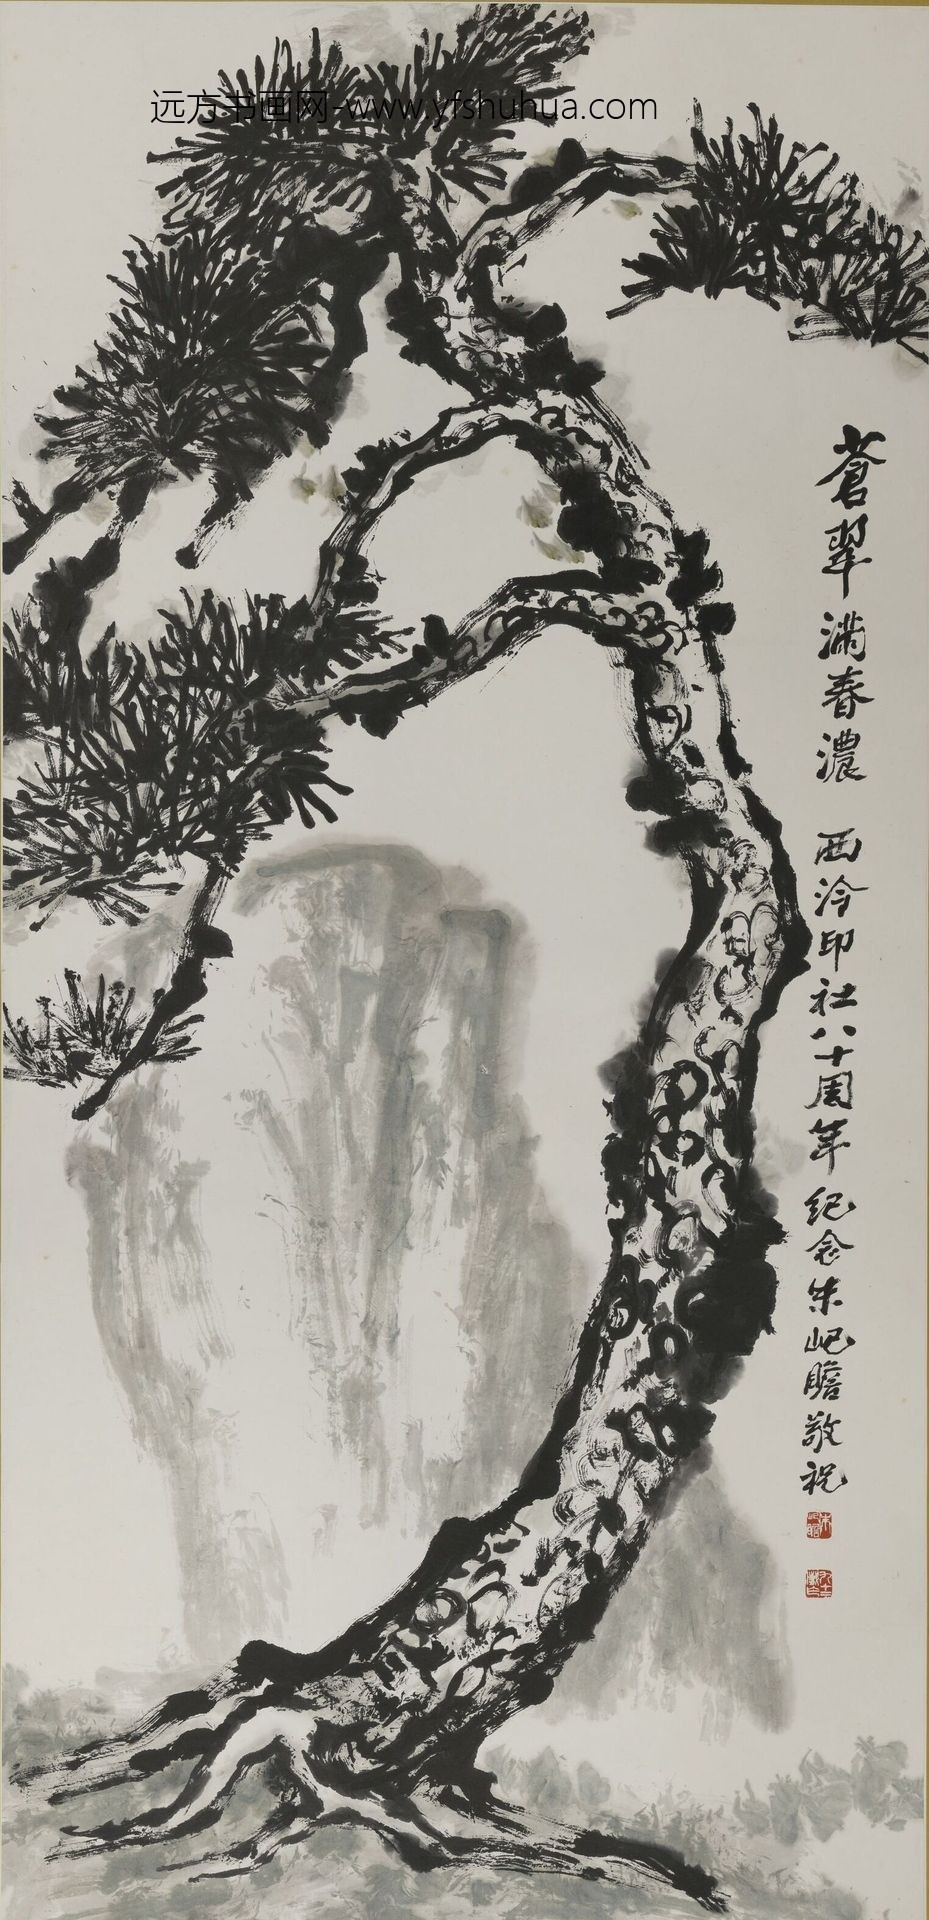 远方书画网-www.yfshuhua.com
蒼翠满春濃 西泠印社八十周年纪念朱屺瞻敬祝